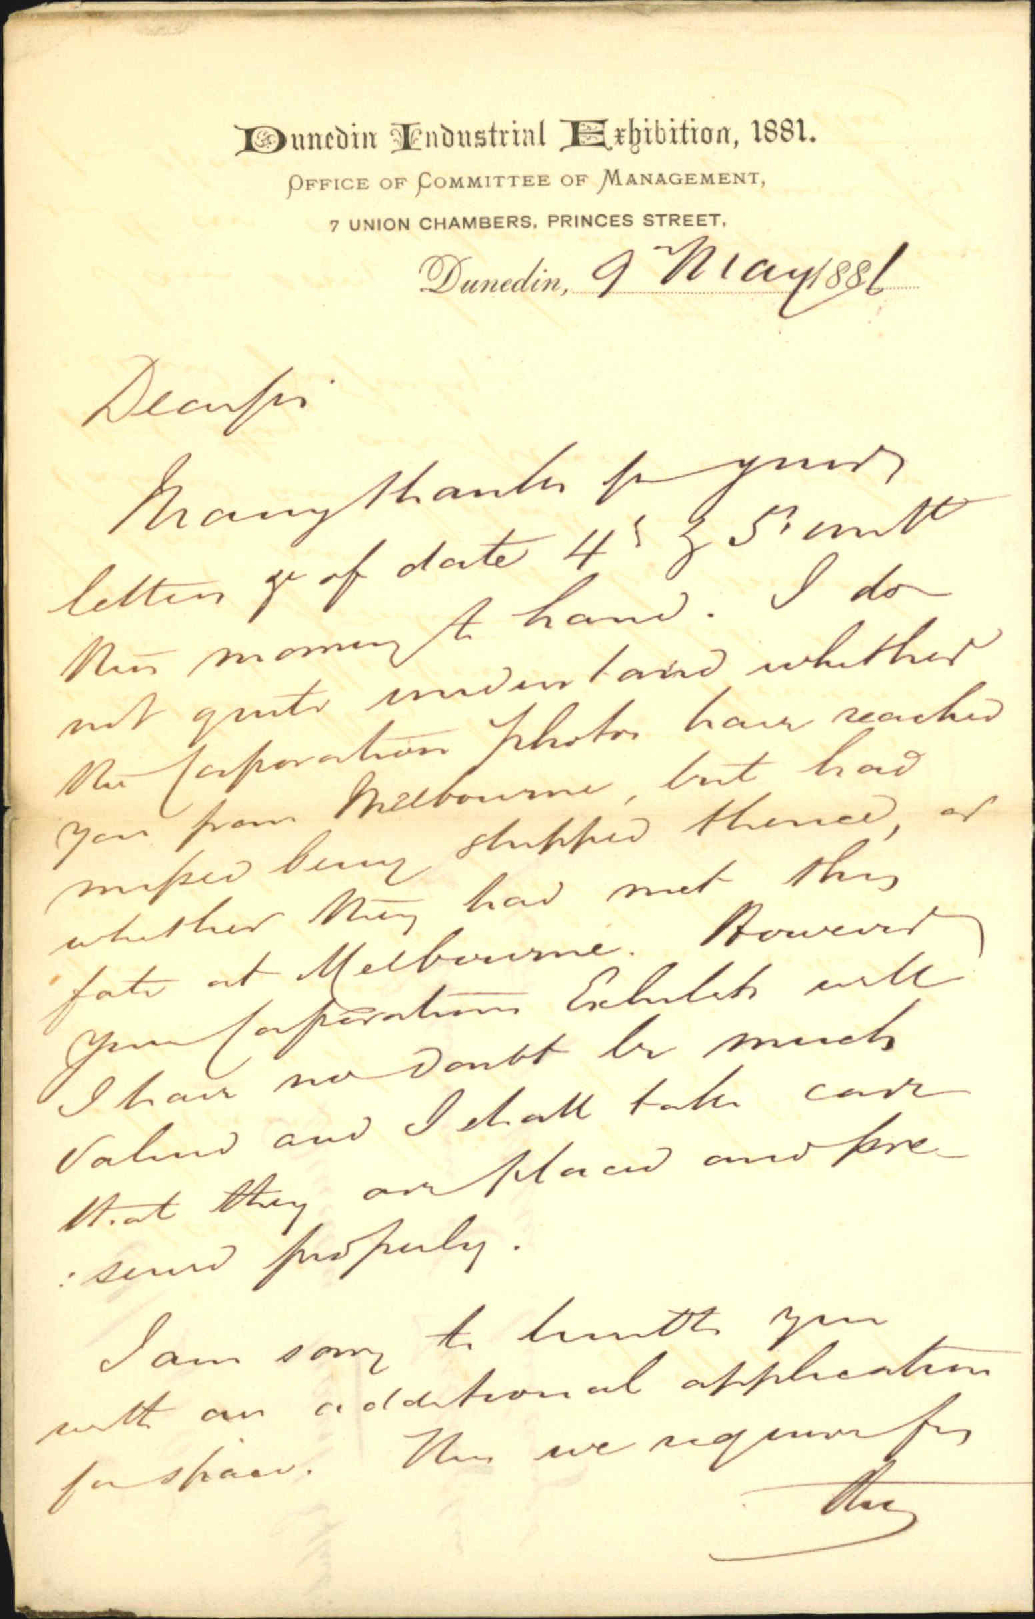 Dunedin Industrial Exhibition, 1881.
Office of Committee of Management,
7 Union Chambers, Princes Street,
Dunedin, 9th May 1881
Dear Sir
Many thanks for your
letters of date 4th & 5th
this morning to hand. I do
not quite understand whether
the Corporation photos have reached
you from Melbourne, but had
missed being shipped thence, or
whether they had met this
fate at Melbourne. However
your Corporation Exhibits will
I have no doubt be much
valued and I shall take care
that they are placed and pre-
:served properly.
I am sorry to trouble you
with an additional application
for space. This we require for
the